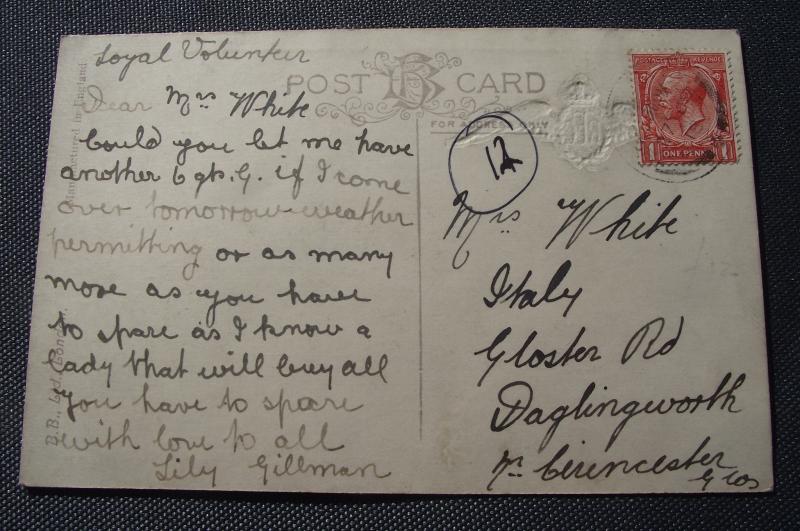 Loyal Volunteer
POST CARD
Dear Mrs White
Could you let me have
another 6 qts. G. if I come
over tomorrow weather
permitting or as many
more as you have
to spare as I know a
lady that will buy all
you have to spare
with love to all
Lily Gillman
Manufactured in England
B.B., Ltd., London.
FOR ADDRESS ONLY
12
POSTAGE REVENUE
1 ONE PENNY 1
Mrs White
Italy
Gloster Rd
Daglingworth
Nr Cirencester
Glos